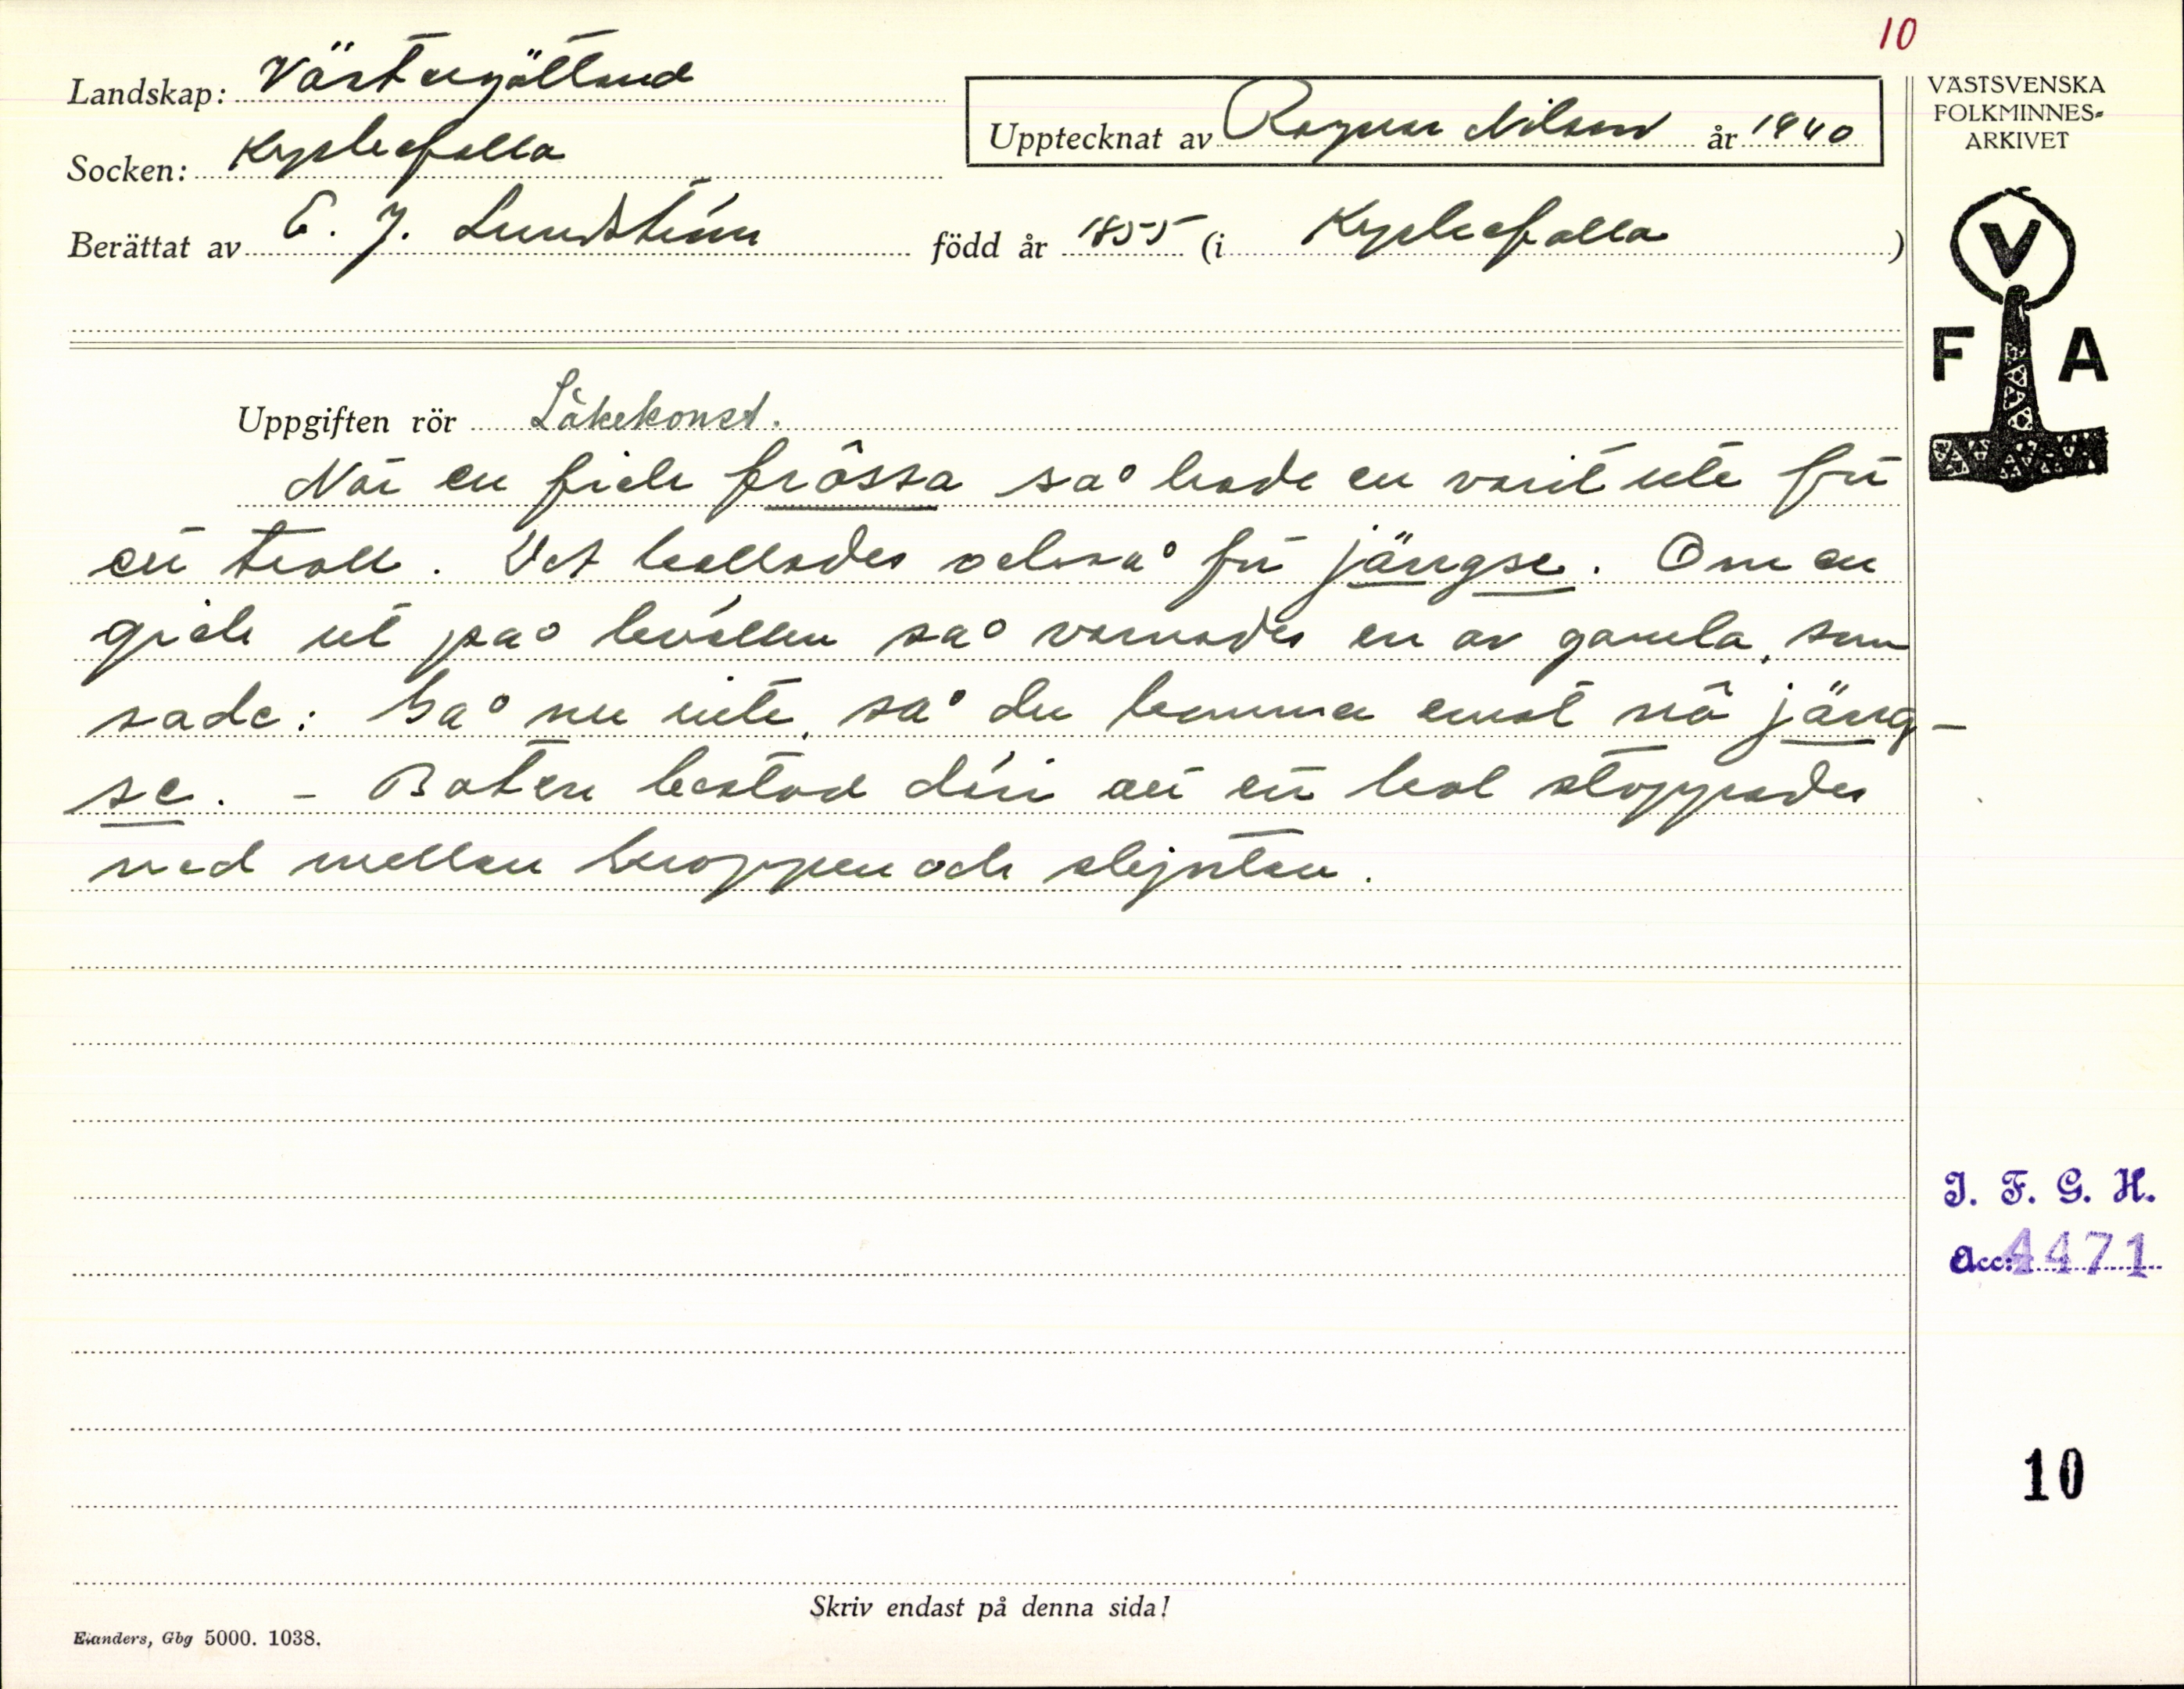 10
Landskap: Västergötland
Socken: Kyrkefalla
Upptecknat av Ragnar Nilsson år 1940
Berättat av E. J. Lundstén född år 1855 (i Kyrkefalla)
VÄSTSVENSKA
FOLKMINNES-
ARKIVET
V
F A
Uppgiften rör Läkekonst.
När en fick frôssa så hade en varit ute för
ett troll. Det kallades också för jängse. Om en
gick ut på kvällen så varnades en av gamla, som
sade: Gå nu inte, så du kommer emot nô jäng-
se. – Boten bestod däri att ett kol stoppades
ned mellan kroppen och skjortan.
I. F. G. H.
Acc: 4471
10
Skriv endast på denna sida!
Elanders, Gbg 5000. 1038.